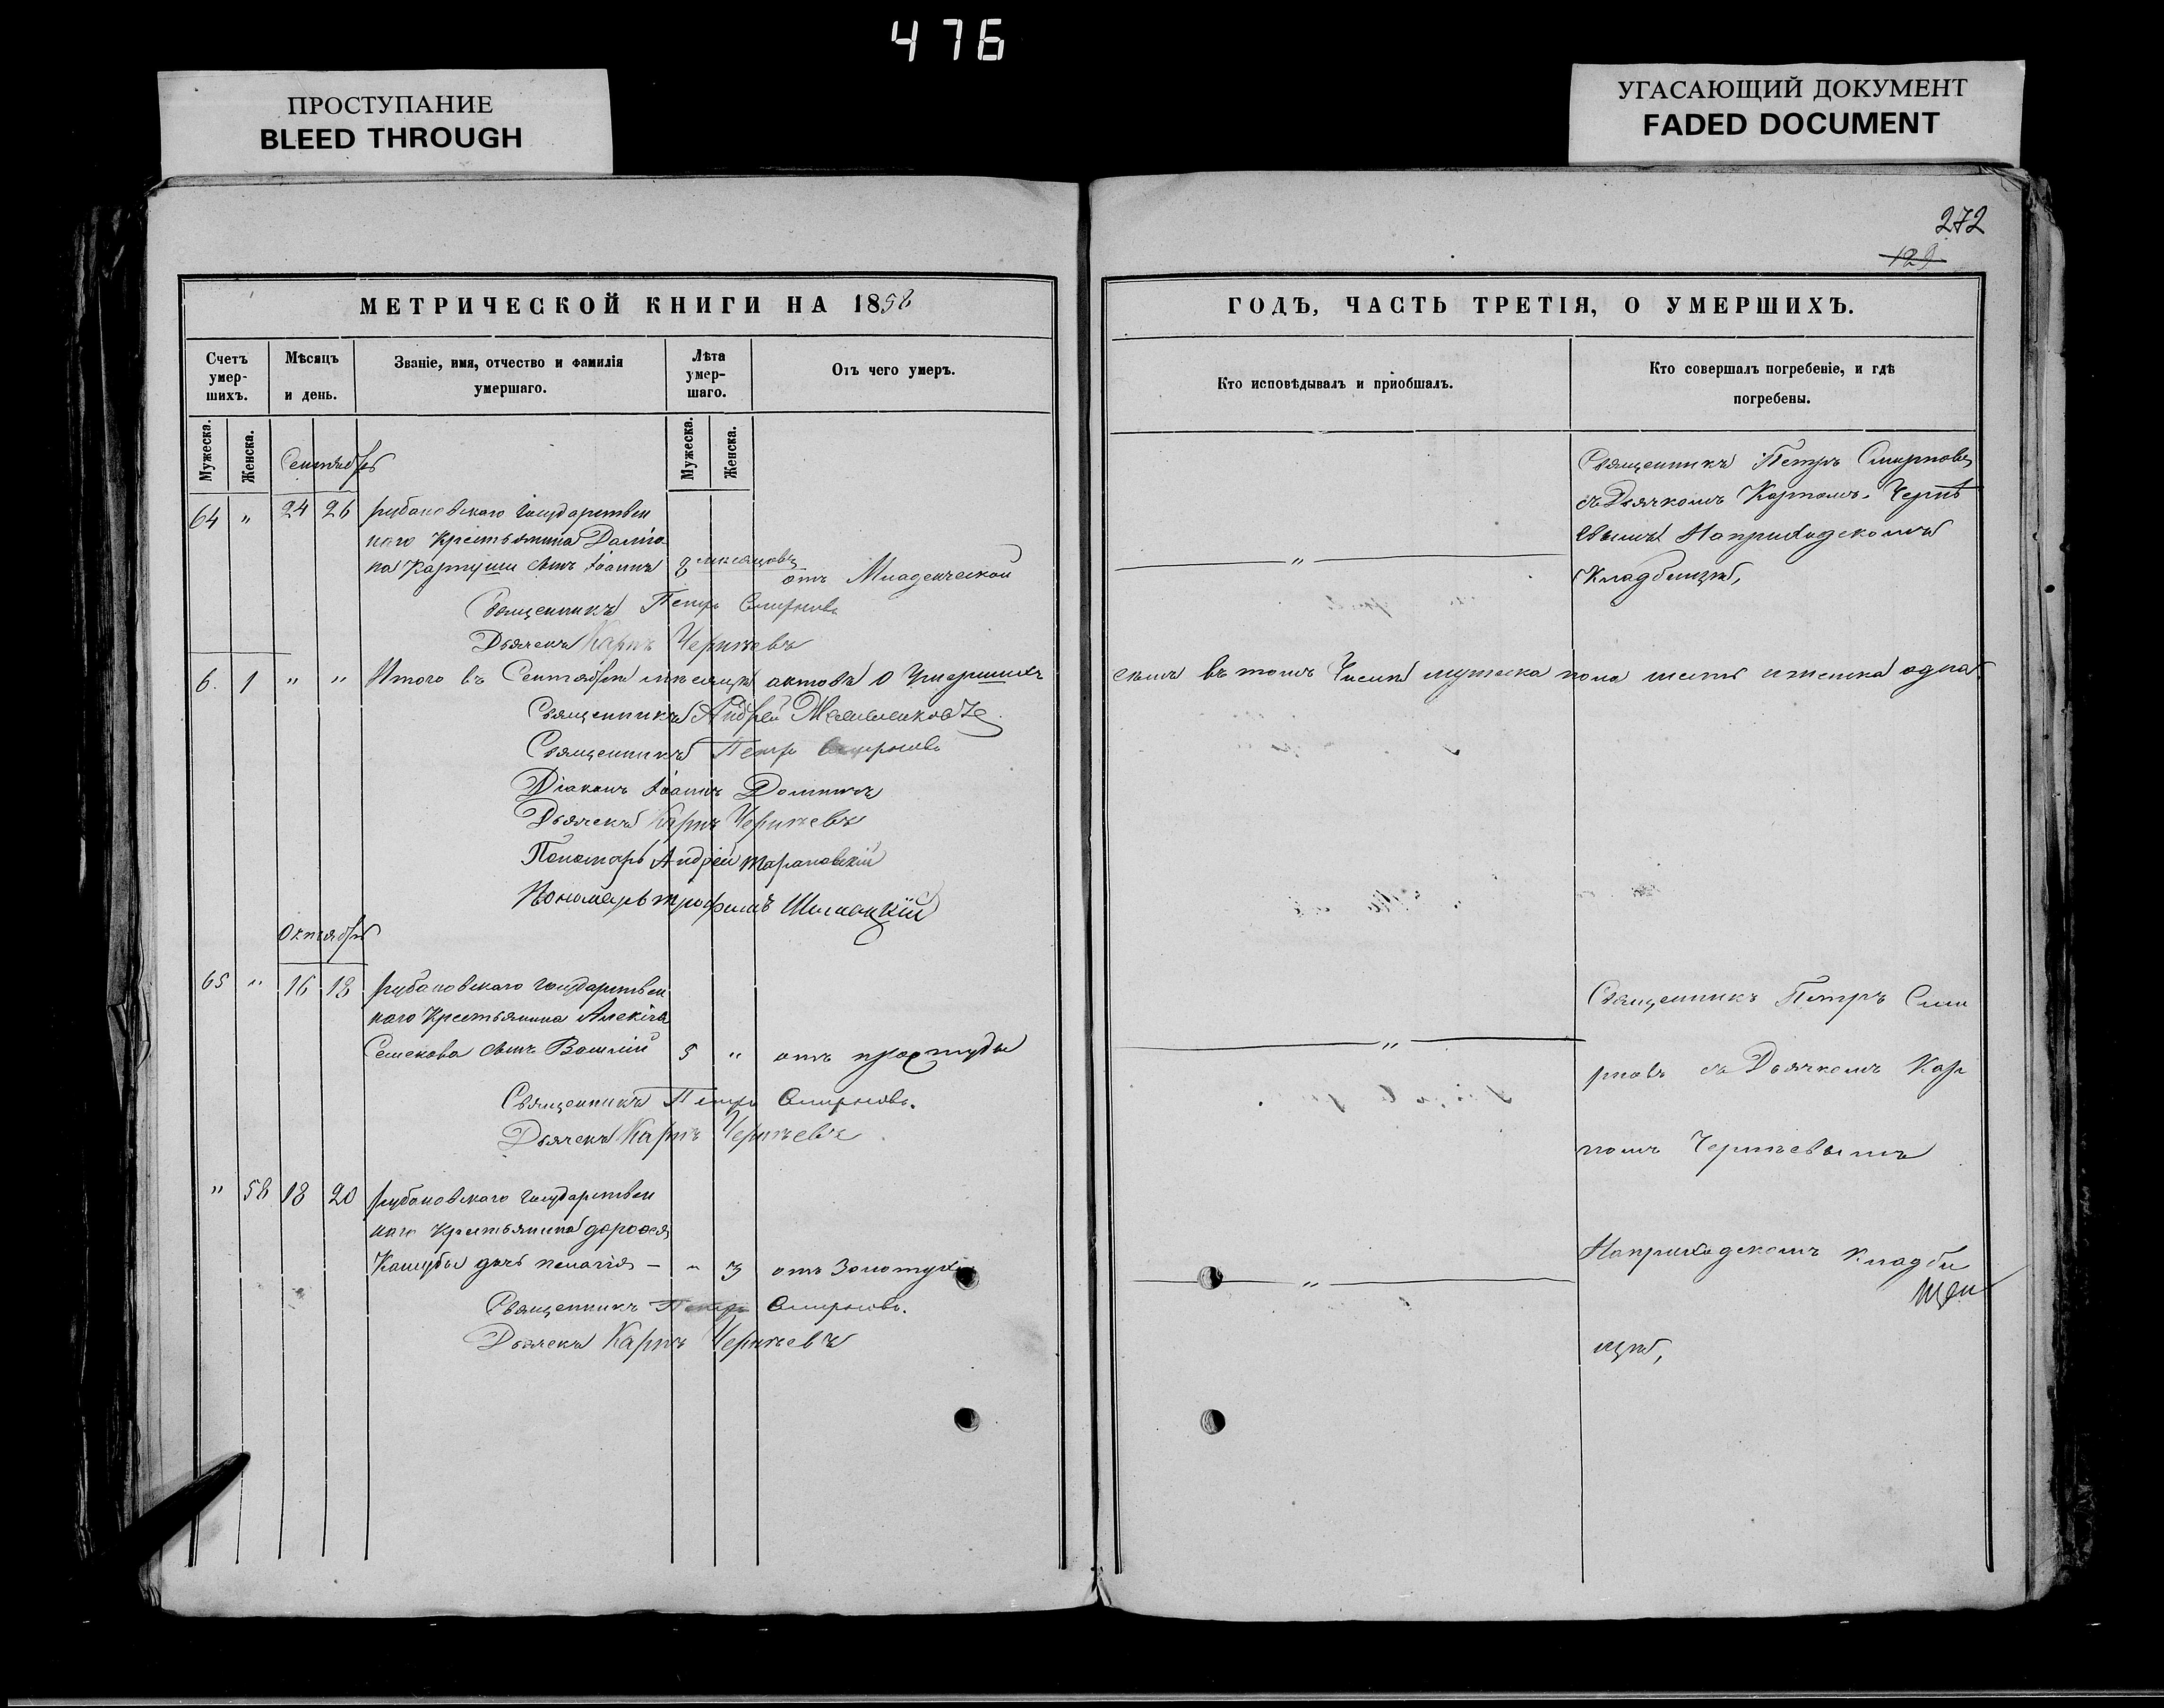 476
ПРОСТУПАНИЕ
BLEED THROUGH
УГАСАЮЩИЙ ДОКУМЕНТ
FADED DOCUMENT
272
129
МЕТРИЧЕСКОЙ КНИГИ НА 1858
Счетъ умер-шихъ.
Мѣсяцъ и день.
Званіе, имя, отчество и фамилія умершаго.
Лѣта умер-шаго.
Отъ чего умеръ.
Мужеска.
Женска.
Мужеска.
Женска.
Сентябрь
64 " 24 26 рубановскаго государствен
наго Крестьянина
сынъ Іоаннъ 8 мѣсяцовъ
отъ Младенческой
Священникъ Петръ Смирновъ
Дьячекъ Карпъ Чернѣевъ
6. 1 " " Итого въ Сентябрѣ мѣсяцѣ актовъ о Умершихъ
Священникъ Андрей
Священникъ Петръ Смирновъ
Діаконъ Іоаннъ
Дьячекъ Карпъ Чернѣевъ
Пономарь Андрей Тарановскій
Пономарь Трофимъ
Октябрь
65 " 16 18 рубановскаго государствен
наго Крестьянина Алексѣя
сынъ Василій 5 " отъ простуды
Священникъ Петръ Смирновъ.
Дьячекъ Карпъ Чернѣевъ
" 58 18 20 рубановскаго государствен
наго Крестьянина дорофея
Кашубы дочь пелагія - " 3 отъ Золотухи
Священникъ Петръ Смирновъ.
Дьячекъ Карпъ Чернѣевъ
ГОДЪ, ЧАСТЬ ТРЕТІЯ, О УМЕРШИХЪ.
Кто исповѣдывалъ и пріобщалъ.
Кто совершалъ погребеніе, и гдѣ
погребены.
Священникъ Петръ Смирновъ
съ Дьячкомъ Карпомъ Чернѣ
евымъ На приходскомъ
"
Кладбищѣ,
семь въ томъ Числѣ мужеска пола шесть и женска одна.
Священникъ Петръ Сми
"
рновъ съ Дьячкомъ Кар
помъ Чернѣевымъ
На приходскомъ Кладби
"
щѣ,